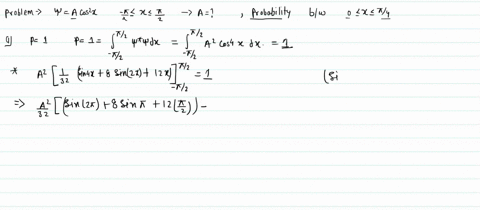 Problem → Ψ = A cos²x -π/2 ≤ x ≤ π/2 → A = ? , Probability b/w 0 ≤ x ≤ π/4
Q) P = 1 P = 1 = ∫_{-π/2}^{π/2} Ψ*Ψ dx = ∫_{-π/2}^{π/2} A² cos4 x dx. = 1
* A² [1/32 (sin4x + 8 sin(2x) + 12x)]_{-π/2}^{π/2} = 1 (Si
=> A²/32 [(sin(2π) + 8 sin π + 12(π/2)) -